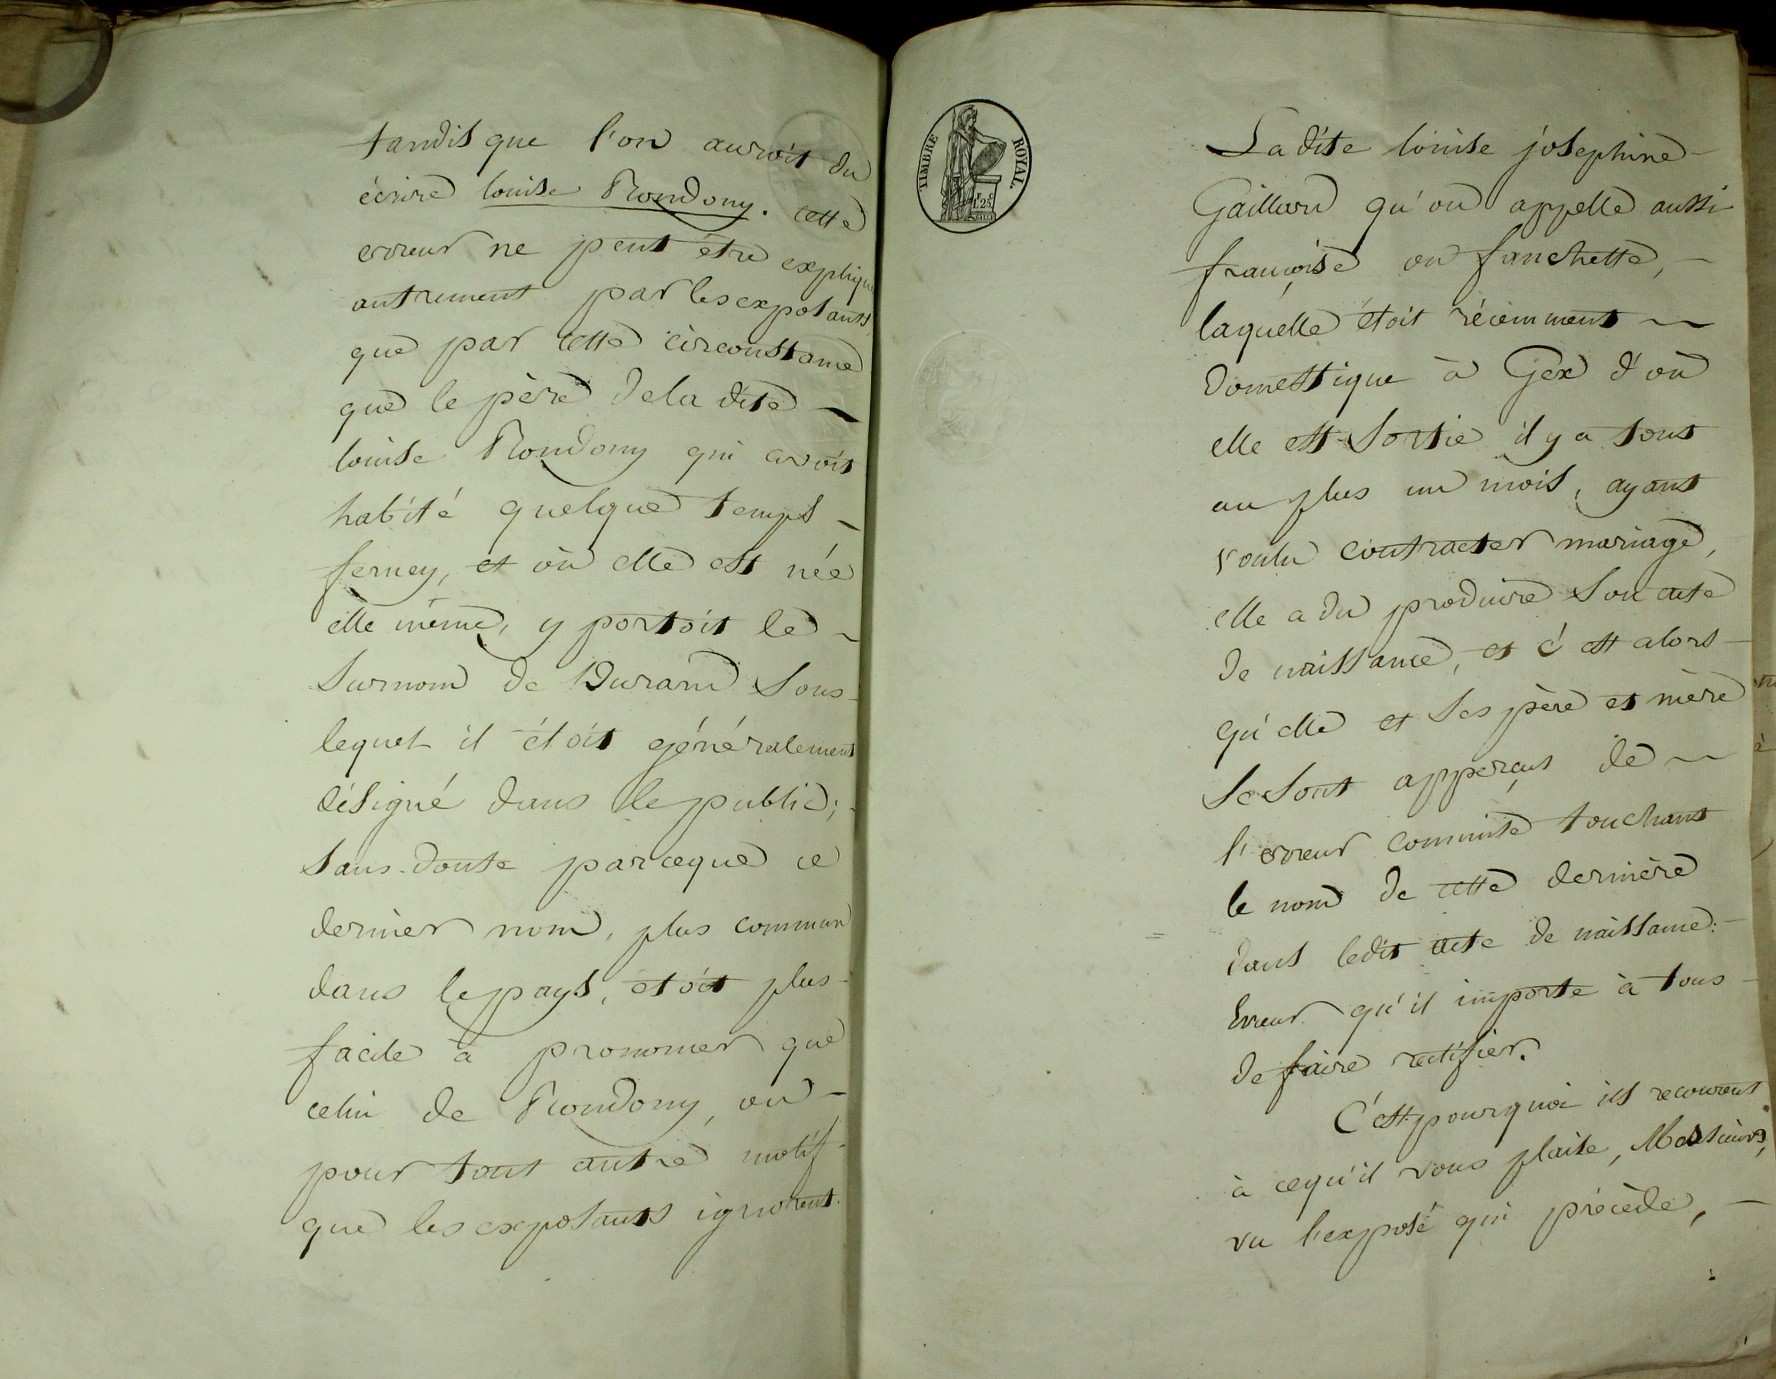 tandis que l'on auroit du
écrire louise Rondony. cette
erreur ne peut être expliqué
autrement par les exposants
que par cette circonstance
que le père de la dite
louise Rondony qui avoit
habité quelque temps
ferney, et où elle est née
elle même, y portoit le
surnom de Durand sous
lequel il étoit généralement
désigné dans le public;
sans doute parceque ce
dernier nom, plus commun
dans le pays, étoit plus
facile à prononcer que
celui de Rondony, ou
pour tout autre motif
que les exposants ignorent.
TIMBRE ROYAL.
1.25
La dite louise josephine
Gaillard qu'on appelle aussi
françoise ou fanchette,
laquelle étoit récemment
domestique à Gex d'où
elle est sortie il y a tout
au plus un mois, ayant
voulu contracter mariage,
elle a du produire son acte
de naissance, et c'est alors
qu'elle et ses père et mère
se sont apperçus de
l'erreur commise touchant
le nom de cette dernière
dans ledit acte de naissance:
Erreur qu'il importe à tous
de faire rectifier.
C'est pourquoi ils recourent
à cequ'il vous plaise, Messieurs,
vu l'exposé qui précède,